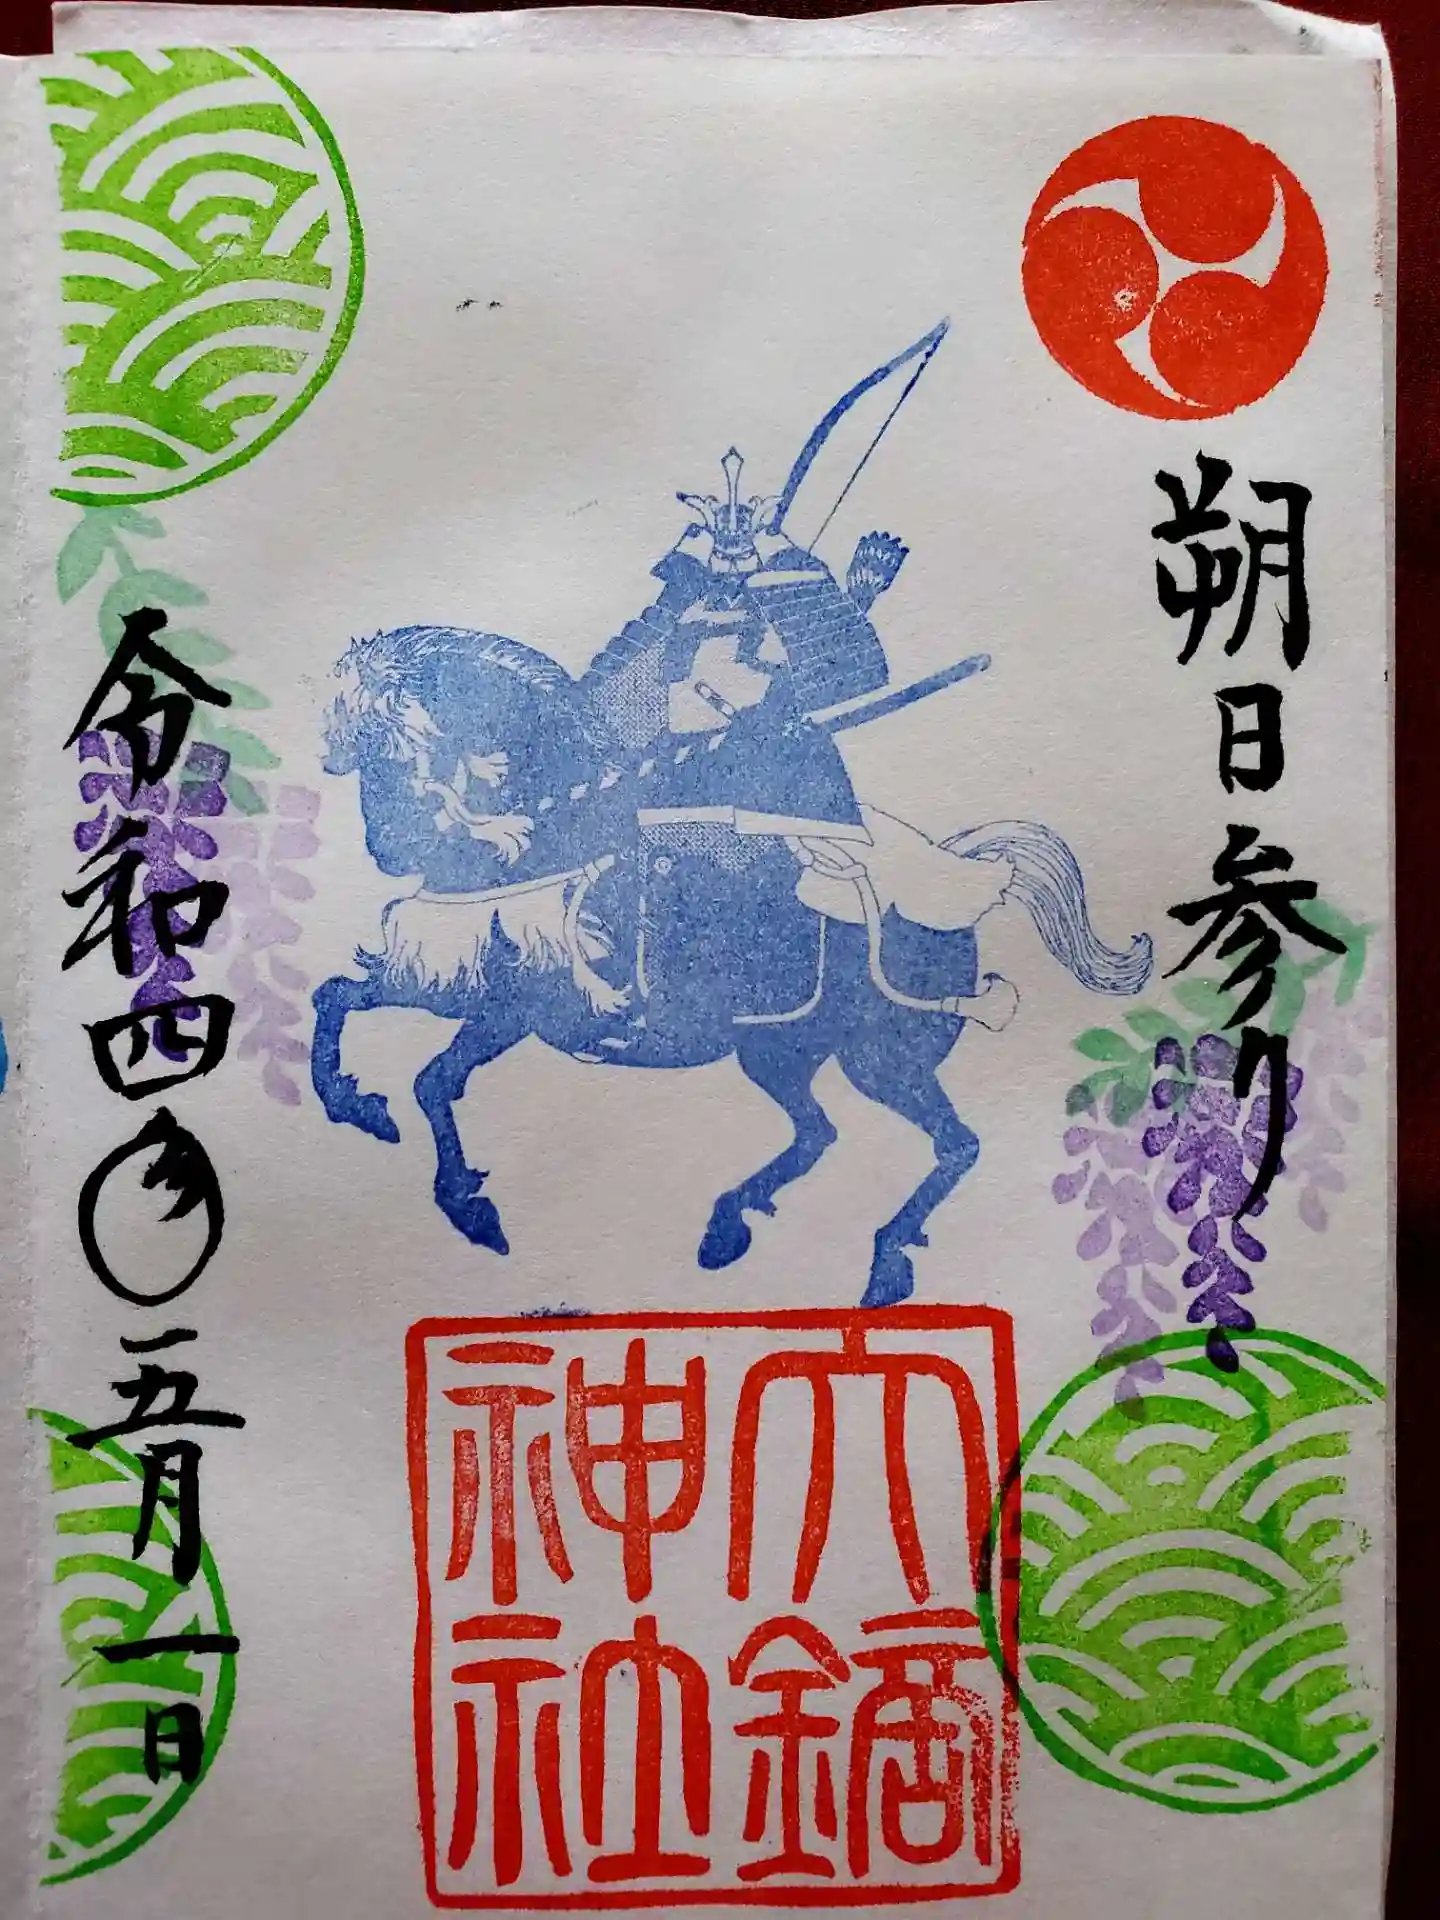 朔日参り
六鏑
神社
令和四年五月一日